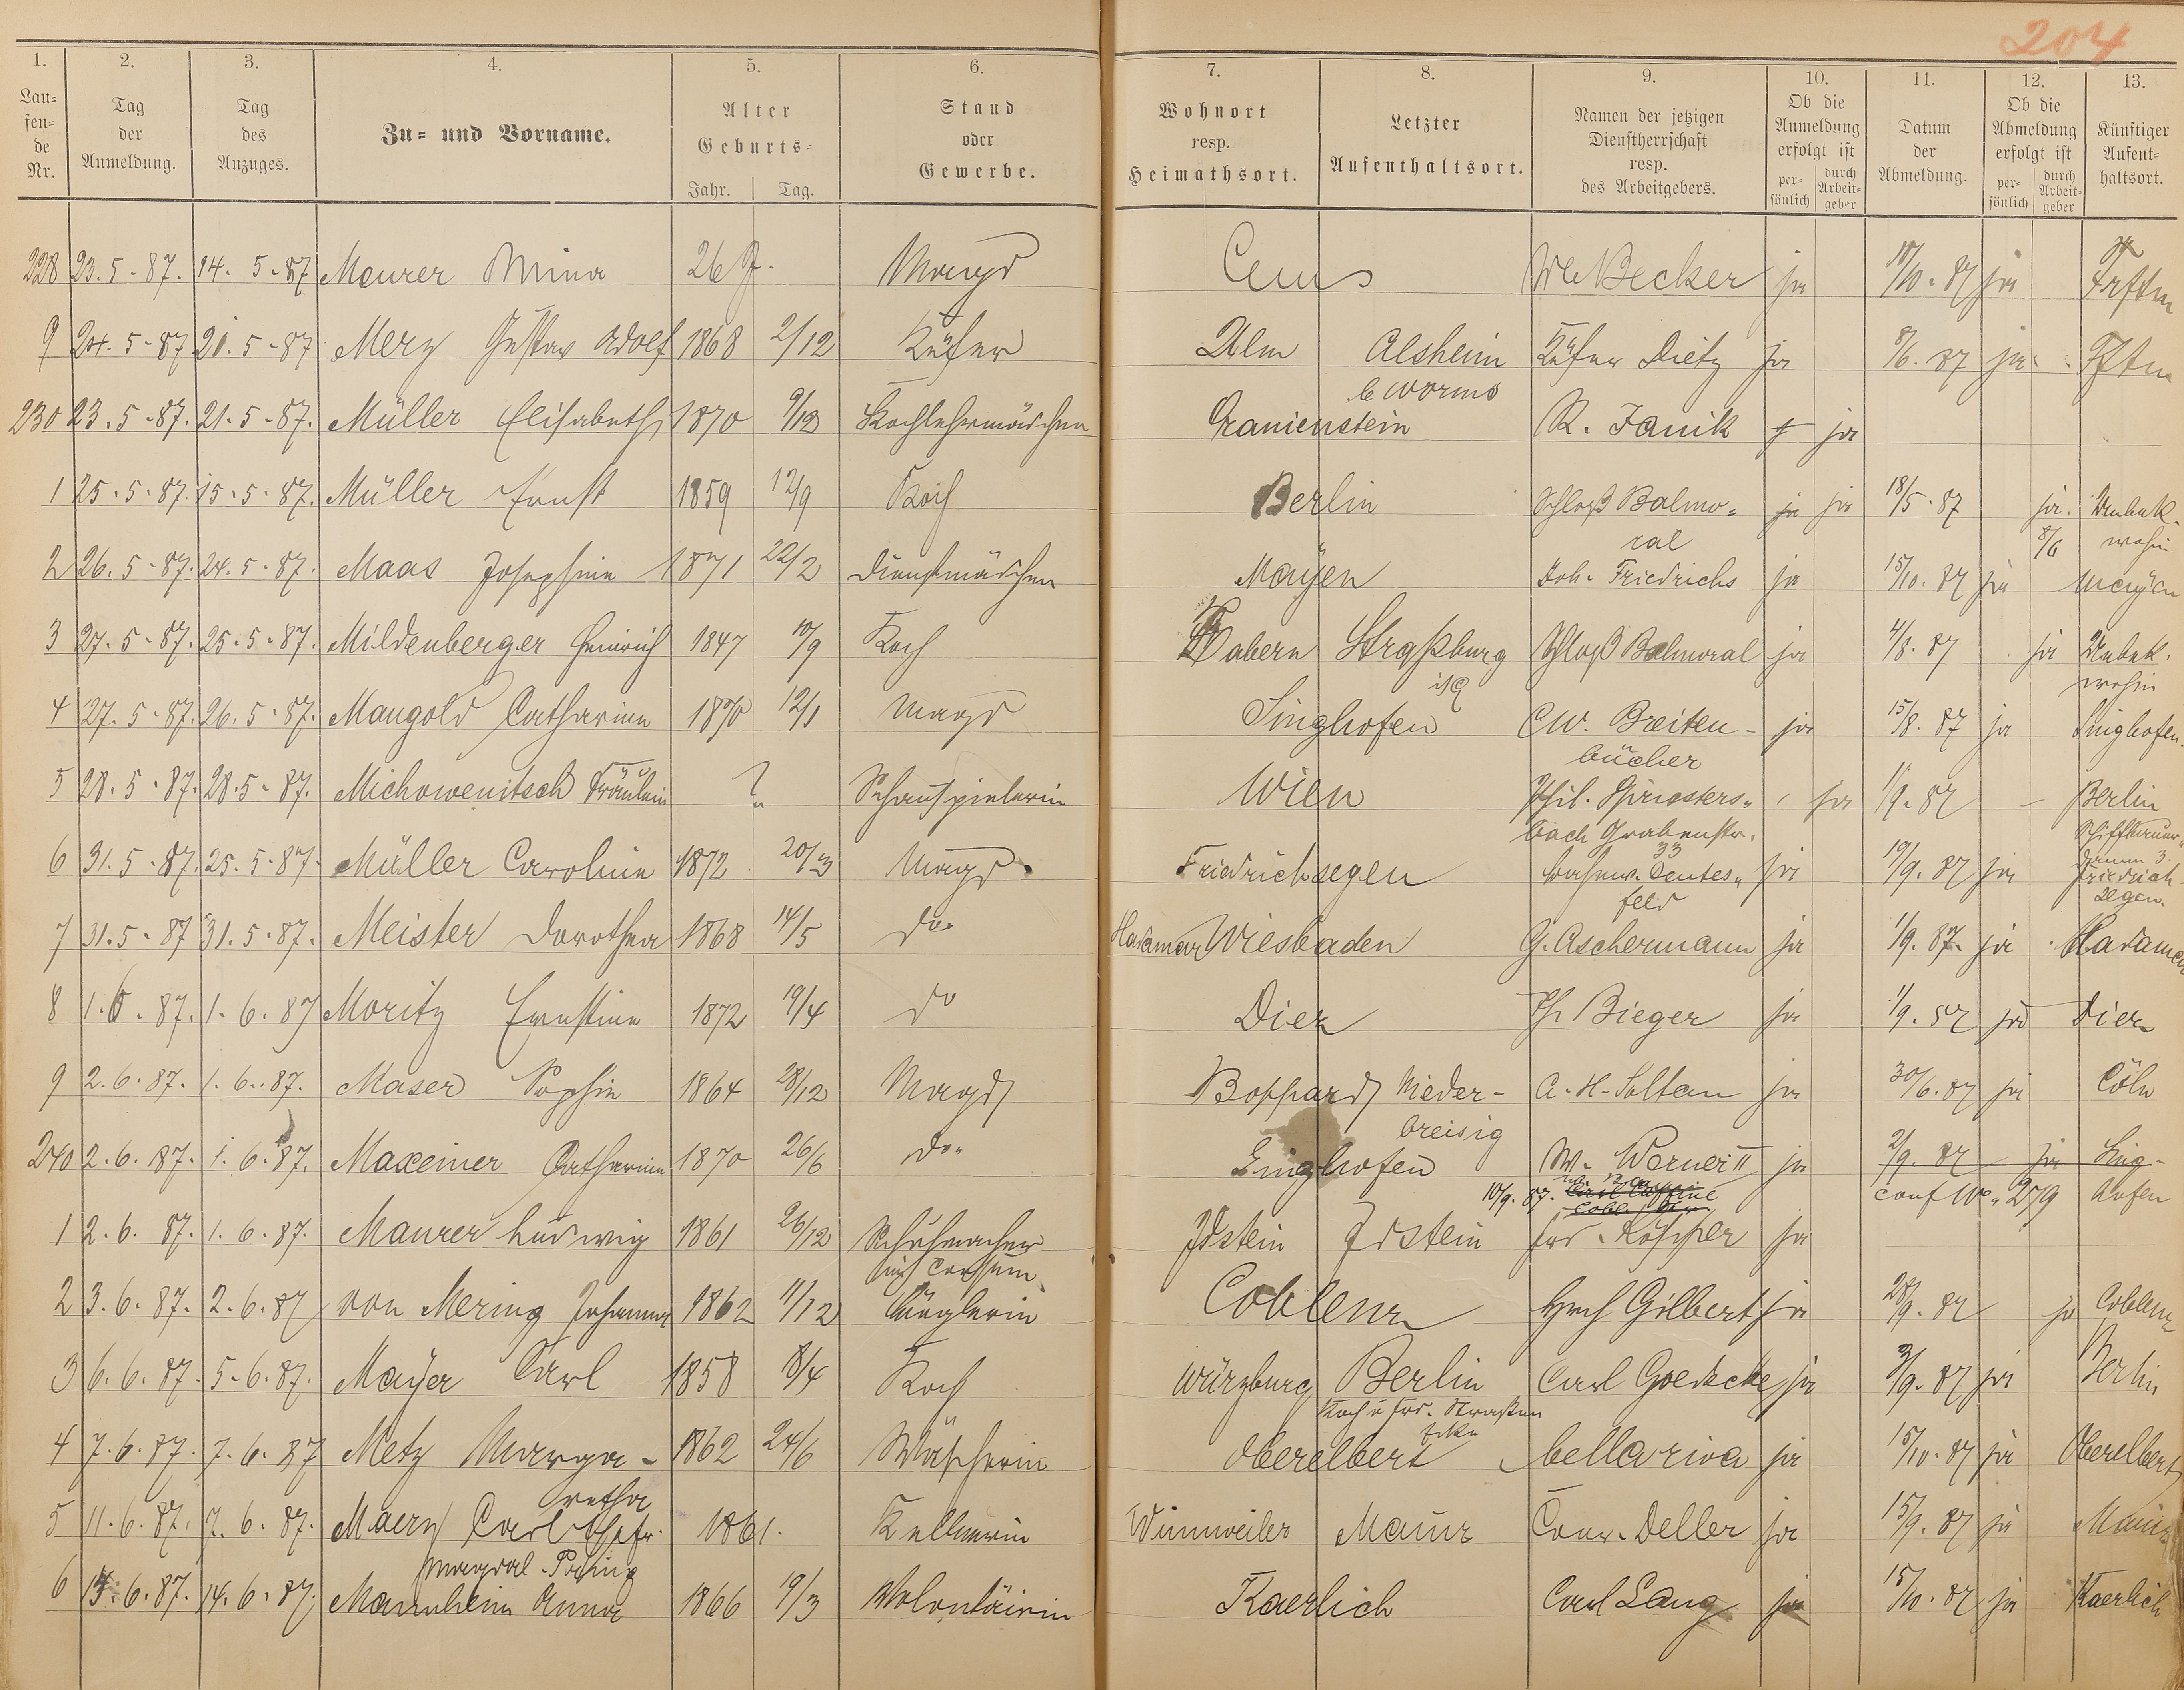 204
1. 2. 3. 4. 5. 6. 7. 8. 9. 10. 11. 12. 13.
Laufende Nr. Tag der Anmeldung. Tag des Anzuges. Zu- und Vorname. Alter Geburts- Jahr. Tag. Stand oder Gewerbe. Wohnort resp. Heimathsort. Letzter Aufenthaltsort. Namen der jetzigen Dienstherrschaft resp. des Arbeitgebers. Ob die Anmeldung erfolgt ist persönlich durch Arbeitgeber Datum der Abmeldung. Ob die Abmeldung erfolgt ist persönlich durch Arbeitgeber Künftiger Aufenthaltsort.
228 23.5-87. 14.5-87 Maurer Mina 26 J. Magd Ems Ww Becker ja 18/10.87 ja Frftm
9 24.5-87 21.5-87 Merz Gustav Adolf 1868 2/12 Küfer Ulm Alsheim Küfer Dietz ja 8/6.87 ja
b Worms
230 23.5-87. 21.5-87. Müller Elisabeth 1870 9/12 Kochlehrmädchen Oranienstein R. Janik ja
1 25.5.87. 15.5.87. Müller Ernst 1859 12/9 Koch Berlin Schloß Balmo- ja ja 18/5.87 ja. Unbek.
ral 8/6 wohin
2 26.5-87. 24.5-87. Maas Josephine 1871 22/2 Dienstmädchen Mayen Joh. Friedrichs ja 15/10.87 ja Mayen
3 27.5-87. 25.5-87. Mildenberger Heinrich 1847 10/9 Koch Zabern Straßburg Schloß Balmoral ja 4/8.87 ja Unbek.
i/E wohin
4 27.5-87. 26.5-87. Mangold Catharine 1870 12/1 Magd Singhofen C W. Breiten- ja 15/8.87 ja Singhofen
bücher
5 28.5-87. 28.5-87. Michowenitsch Fräulein ? Schauspielerin Wien Phil. Spriesters- ja 1/9.87 Berlin
bach Grabenstr. 33 Schiffbauer-
damm 3.
6 31.5-87. 25.5-87. Müller Caroline 1872 20/3 Magd Friedrichsegen ja 19/9.87 ja Friedrich-
feld segen.
7 31.5-87 31.5-87. Meister Dorothea 1868 14/5 do. Hadamar Wiesbaden G. Aschermann ja 1/9.87 ja Hadamar
8 1.6.87. 1.6.87 Moritz Ernstine 1872 19/4 do Diez Ph Bieger ja 1/9.87 ja Diez
9 2.6.87. 1.6.87. Maser Sophie 1864 28/12 Magd Boppard Nieder- A. H. Soltau ja 30/6.87 ja Cöln
breisig
240 2.6.87. 1.6.87. Maxeiner Catharine 1870 26/6 do. Singhofen W. Werner II ja 2/9.87 ja Sing-
10/9.87. 27/9 hofen
1 2.6.87. 1.6.87. Maurer Ludwig 1861 26/12 Schuhmacher Idstein Idstein Köpper ja
2 3.6.87. 2.6.87 von Mering Johanna 1862 11/12 Büglerin Coblenz Hrch Gilbert ja 28/9.87 ja Coblenz
3 6.6.87. 5.6.87. Mayer Carl 1858 8/4 Koch Würzburg Berlin Carl Goedecke ja 3/9.87 ja Berlin
Koch u Frd. Straßen
Ecke
4 7.6.87. 7.6.87 Metz Marga- 1862 24/6 Wäscherin Oberelbert bellariva ja 15/10.87 ja Oberelbert
retha
5 11.6.87. 7.6.87. Maery Carl Ehefr. 1861. Kellnerin Winnweiler Mainz Conr. Deller ja 15/9.87 ja Mainz
6 15.6.87. 14.6.87. Mannheim Anna 1866 19/3 Volontärin Kaerlich Carl Lang ja 15/10.87 ja Kaerlich